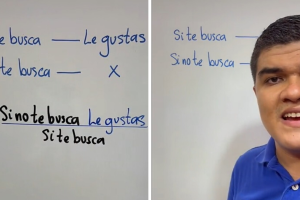 te busca — Le gustas
te busca — X
Si no te busca Le gustas
Si te busca
Si te busca —
Si no te busca —